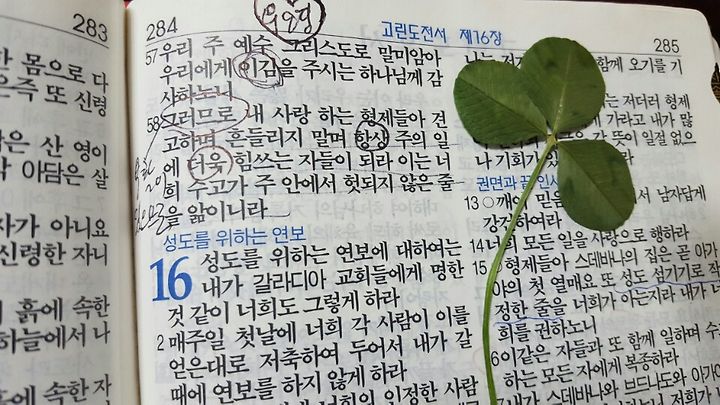 283
몸으로 다
은즉 또 신령
은 산 영이
아담은 살
자가 아니요
신령한 자니
흙에 속한
하늘에서 나
흙에 속한 자
284
57 우리 주 예수 그리스도로 말미암아
우리에게 이김을 주시는 하나님께 감
사하노니
58 그러므로 내 사랑 하는 형제들아 견
고하며 흔들리지 말며 항상 주의 일
에 더욱 힘쓰는 자들이 되라 이는 너
희 수고가 주 안에서 헛되지 않은 줄
을 앎이니라
성도를 위하는 연보
16 성도를 위하는 연보에 대하여는
내가 갈라디아 교회들에게 명한
것 같이 너희도 그렇게 하라
2 매주일 첫날에 너희 각 사람이 이를
얻은대로 저축하여 두어서 내가 갈
때에 연보를 하지 않게 하라
너희의 인정한 사람
고린도전서 제16장
285
함께 오기를 기
는 저더러 형제
가라고 내가 많
갈 뜻이 일절 없으
나 기회가
권면과 끝 인사
13 ○깨어 믿음 서서 남자답게
강건하여라
14 너희 모든 일을 사랑으로 행하라
15 ○형제들아 스데바나의 집은 곧 아가
야의 첫 열매요 또 성도 섬기기로 작
정한 줄을 너희가 아는지라 내가 너
희를 권하노니
16 이같은 자들과 또 함께 일하며 수고
하는 모든 자에게 복종하라
내가 스데바나와 브드나도와 아가이